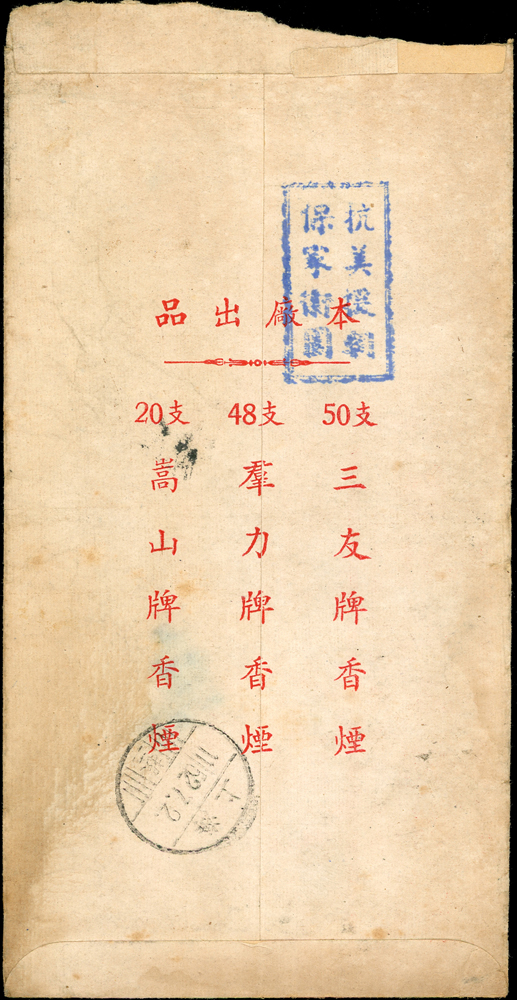 抗美援朝
保家衛國
本廠出品
50支
三友牌香煙
48支
羣力牌香煙
20支
嵩山牌香煙
上海
52.7.2